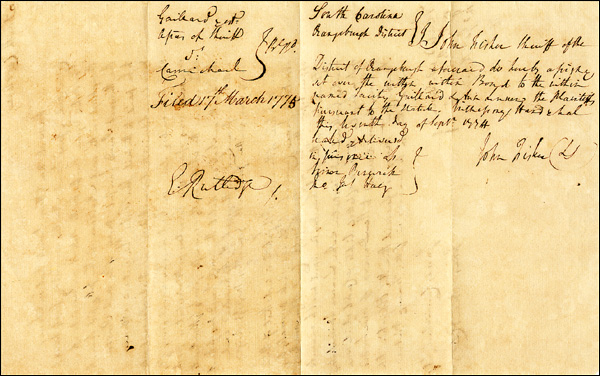 Gaillard & al
Assees of Sheriff
vs
Carmichael
Filed 17th March 1775
E. Rutledge
South Carolina
Orangeburgh District
I John Fisher Sheriff of the
District of Orangeburgh aforesaid do hereby assign &
set over the within written Bond to the within
named Gaillard the Plaintiffs
Pursuant to the Statute Witness my Hand & Seal
this day of Septr 1774
Sealed & Delivered
in presence
John Fisher LS